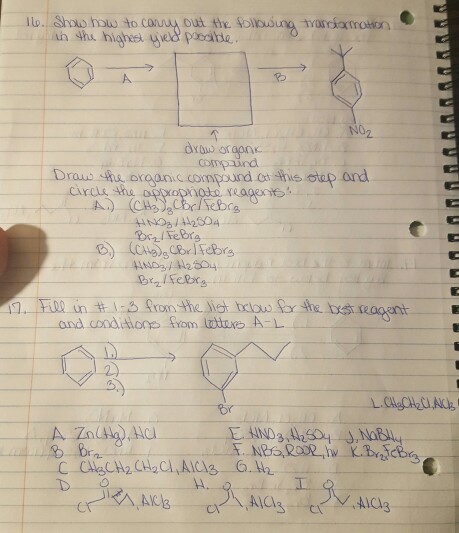 16. Show how to carry out the following transformation
in the highest yield possible.
A
B
NO2
draw organic
compound
Draw the organic compound at this step and
circle the appropriate reagents:
A.) (CH3)3CBr/FeBr3
HNO3/H2SO4
Br2/FeBr3
B.) (CH3)3CBr/FeBr3
HNO3/H2SO4
Br2/FeBr3
17. Fill in #1-3 from the list below for the best reagent
and conditions from letters A-L
1.)
2)
3.)
Br
L. CH3CH2Cl, AlCl3
A Zn(Hg), HCl E. HNO3, H2SO4 J. NaBH4
B Br2 F. NBS, ROOR, hv K. Br2 FeBr3
C CH3CH2CH2Cl, AlCl3 G. H2
D O Cl , AlCl3 H. O Cl , AlCl3 I O Cl , AlCl3